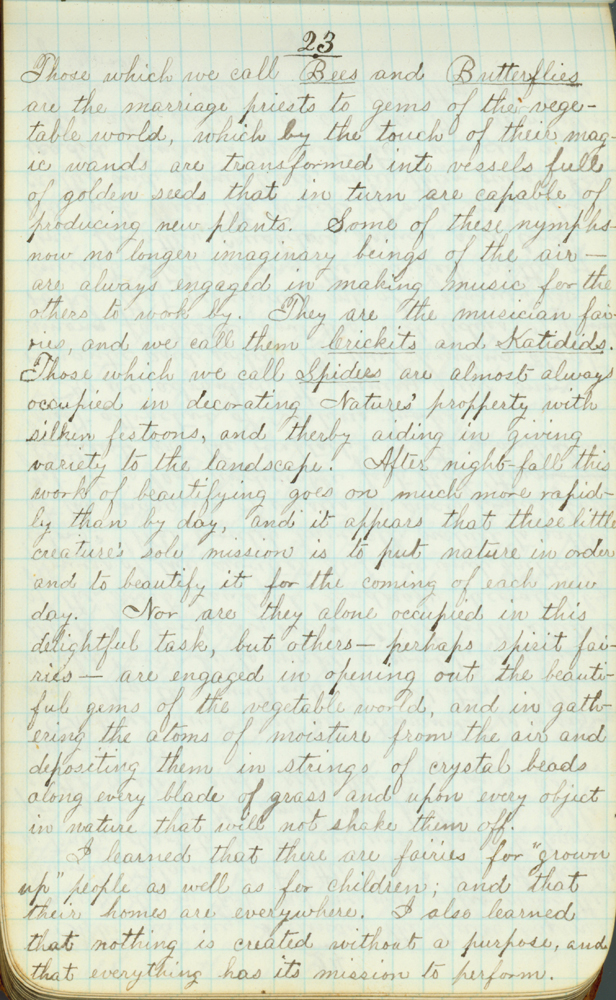 23
Those which we call Bees and Butterflies
are the marriage priests to gems of the vege-
table world, which by the touch of their mag-
ic wands are transformed into vessels full
of golden seeds that in turn are capable of
producing new plants. Some of these nymphs-
now no longer imaginary beings of the air —
are always engaged in making music for the
others to work by. They are the musician fai-
ries, and we call them Crickits and Katidids.
Those which we call Spiders are almost always
occupied in decorating Natures' propperty with
silken festoons, and therby aiding in giving
variety to the landscape. After night-fall this
work of beautifying goes on much more rapid-
ly than by day, and it appears that these little
creature's sole mission is to put nature in order
and to beautify it for the coming of each new
day. Nor are they alone occupied in this
delightful task, but others — perhaps spirit fai-
ries — are engaged in opening out the beauti-
ful gems of the vegetable world, and in gath-
ering the atoms of moisture from the air and
depositing them in strings of crystal beads
along every blade of grass and upon every object
in nature that will not shake them off.
I learned that there are fairies for "grown
up" people as well as for children; and that
their homes are everywhere. I also learned
that nothing is created without a purpose, and
that everything has its mission to perform.